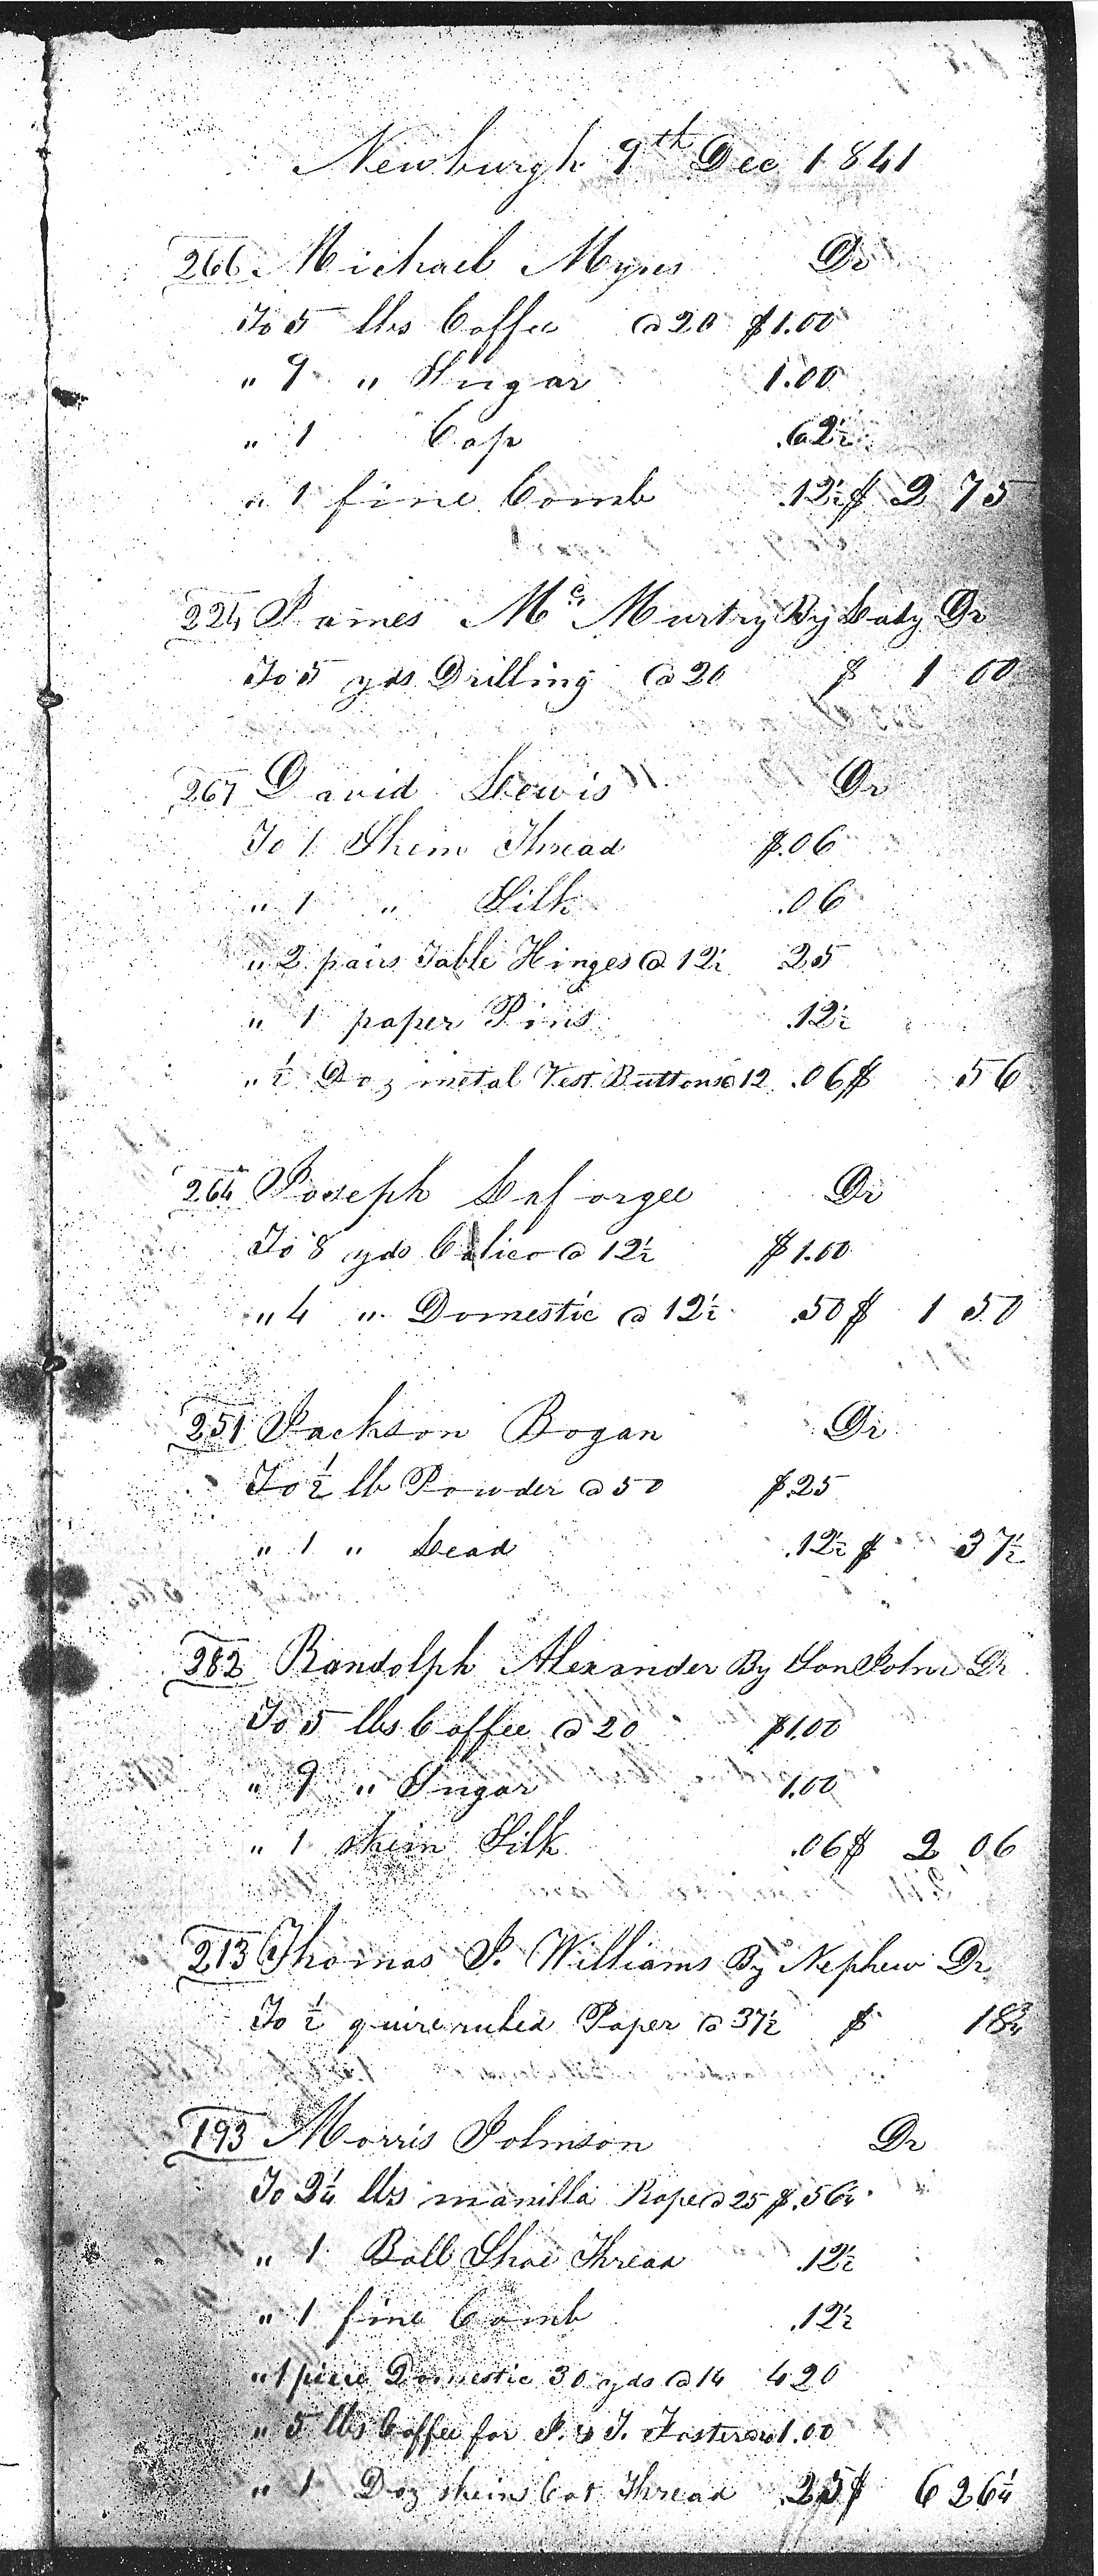 Newburgh 9th Dec 1841
266 Michael Myres Dr
To 5 lbs Coffee @ 20 $1.00
" 9 " Sugar 1.00
" 1 Cap .62½
" 1 fine Comb .12½ $ 2 75
224 James McMurtry By Lady Dr
To 5 yds Drilling @ 20 $ 1 00
267 David Lewis Dr
To 1 Skein Thread $.06
" 1 " Silk .06
" 2 pairs Table Hinges @ 12½ 25
" 1 paper Pins .12½
" ½ Doz metal Vest Buttons @ 12 .06 $ 56
264 Joseph Laforgee Dr
To 8 yds Calico @ 12½ $1.00
" 4 " Domestic @ 12½ .50 $ 1 50
251 Jackson Bogan Dr
To ½ lb Powder @ 50 $.25
" 1 " Lead .12½ $ 37½
282 Randolph Alexander By Son John Dr
To 5 lbs Coffee @ 20 $1.00
" 9 " Sugar 1.00
" 1 skein Silk .06 $ 2 06
213 Thomas J. Williams By Nephew Dr
To ½ quire ruled Paper @ 37½ $ 18¾
193 Morris Johnson Dr
To 2¼ lbs manilla Rope @ 25 $.56¼
" 1 Ball Shoe Thread .12½
" 1 fine Comb .12½
" 1 piece Domestic 30 yds @ 14 4 20
" 5 lbs Coffee for J. & T. Foster 1.00
" 1 Doz skeins Cot Thread .25 $ 6 26¼